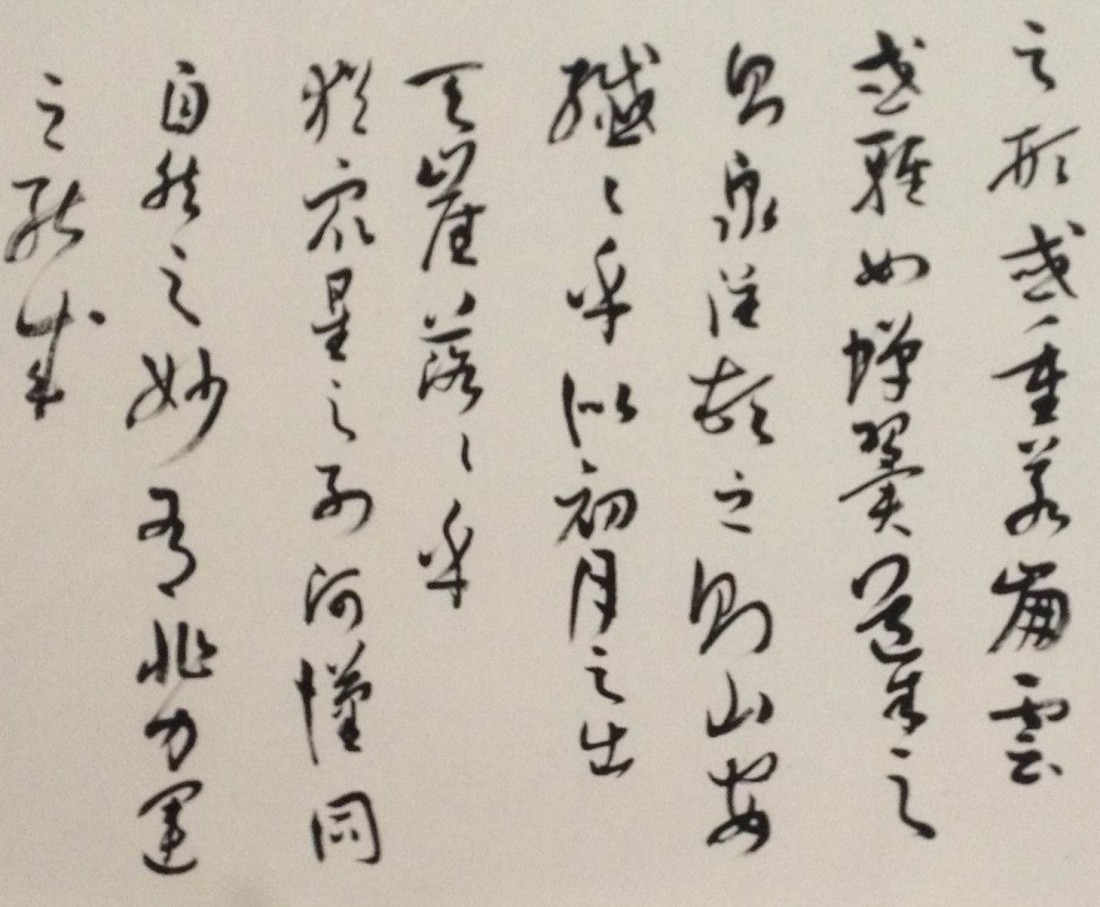 之形或重若崩雲
或輕如蟬翼導之
則泉注頓之則山安
纖〻乎似初月之出
天崖落〻乎
猶眾星之列河漢同
自然之妙有非力運
之能成